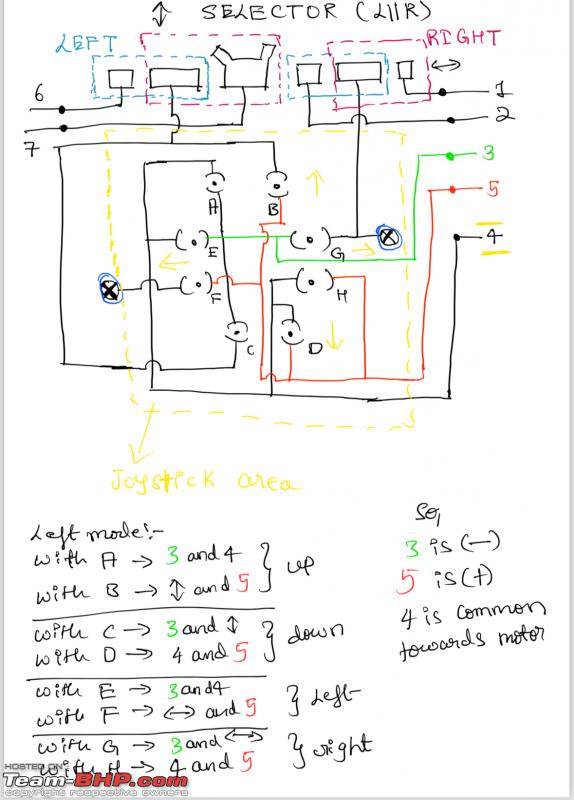 ↕ SELECTOR (L||R)
LEFT
RIGHT
↔
6
1
2
7
3
5
4
A
B
E
G
F
H
C
D
Joystick area
Left mode:-
with A → 3 and 4
with B → ↕ and 5
} up
with C → 3 and ↕
with D → 4 and 5
} down
with E → 3 and 4
with F → ↔ and 5
} Left
with G → 3 and ↔
with H → 4 and 5
} right
So,
3 is (−)
5 is (+)
4 is common
towards motor
HOSTED ON
Team-BHP.com
copyright respective owners